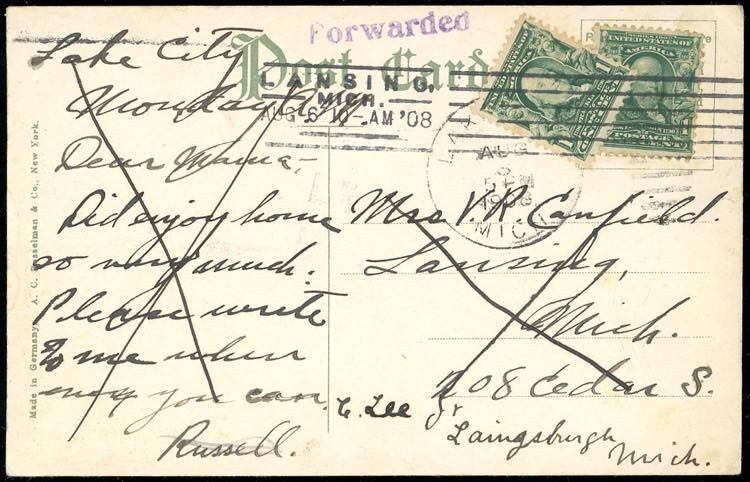 Forwarded
Post Card
LANSING,
MICH.
AUG 6 10-AM '08
AUG
1908
MICH
UNITED STATES OF
POSTAGE
Lake City
Monday
Dear Mama -
Did enjoy home
so very much.
Please write
to me when
you can.
Russell.
Mrs. V. R. Canfield.
Lansing,
Mich.
208 Cedar S.
Lee
Laingsburgh
Mich.
Made in Germany, A. C. Bosselman & Co., New York.